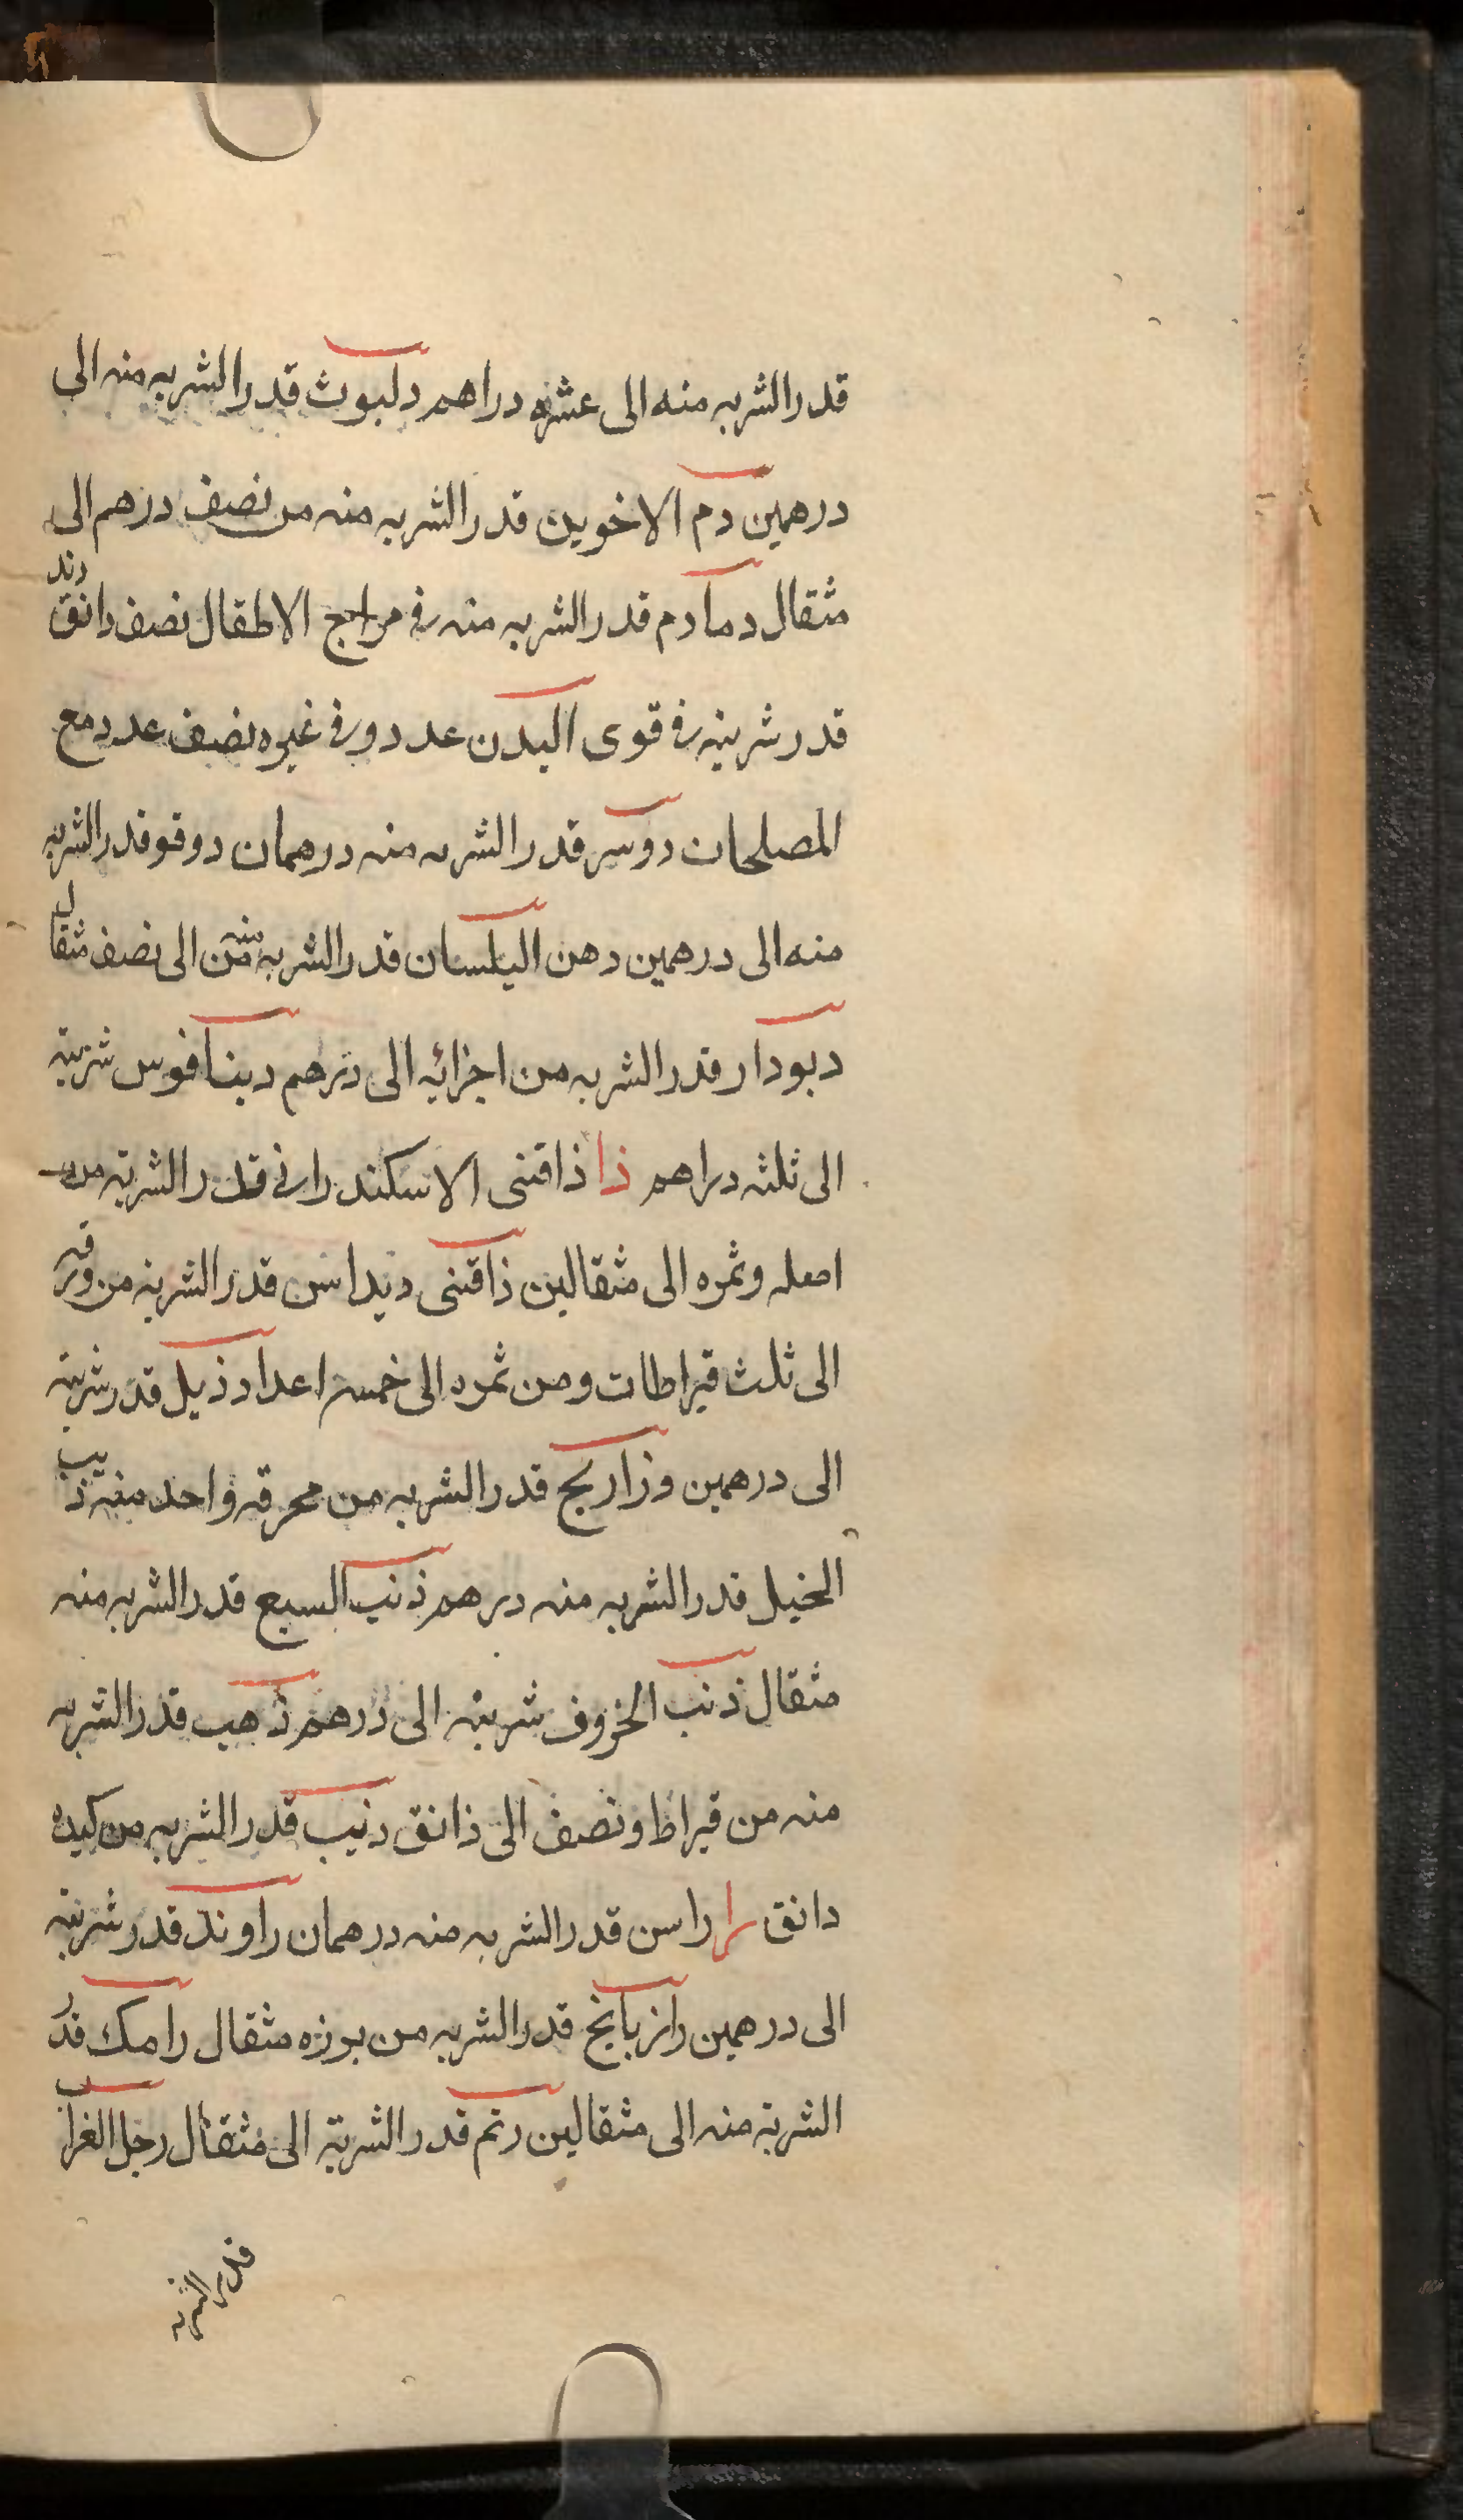 قدر الشربه منه الى عشره دراهم دلبوث قدر الشربه منه الى
درهمين دم الاخوين قدر الشربه منه من نصف درهم الى
مثقال دمادم قدر الشربه منه فى مزاج الاطفال نصف دانق دند
قدر شربته فى قوى البدن عدد وفى غيره نصف عدد مع
المصلحات دوسر قدر الشربه منه درهمان دوقو قدر الشربه
منه الى درهمين دهن البلسان قدر الشربه منه من الى نصف مثقال
ديودار قدر الشربه من اجزائه الى درهم دينافوس شربته
الى ثلثه دراهم ذا ذاقنى الاسكندرانى قدر الشربته من
اصله وثمره الى مثقالين ذاقنى ديداس قدر الشربته من ورقه
الى ثلث قيراطات ومن ثمره الى خمسه اعداد ذبل قدر شربته
الى درهمين وزاريج قدر الشربه من محرقه واحد منه ذنب
الخيل قدر الشربه منه درهم ذنب السبع قدر الشربه منه
مثقال ذنب الخروف شربته الى درهم ذهب قدر الشربه
منه من قيراط ونصف الى ذانق ذيب قدر الشربه من كبده
دانق را راسن قدر الشربه منه درهمان راوند قدر شربته
الى درهمين رازيانج قدر الشربه من بزره مثقال رامك قدر
الشربته منه الى مثقالين رتم قدر الشربته الى مثقال رجل الغراب
قدر الشربه